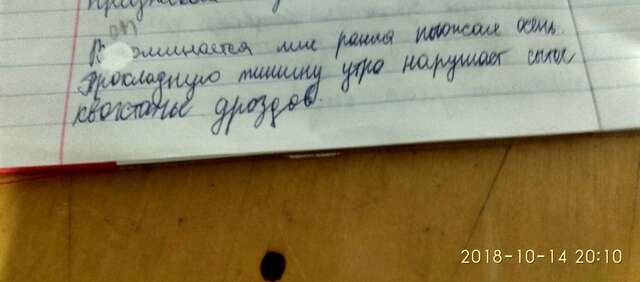 Вспоминается мне ранняя погожая осень.
Прохладную тишину утра нарушает сытое
квохтанье дроздов.
2018-10-14 20:10